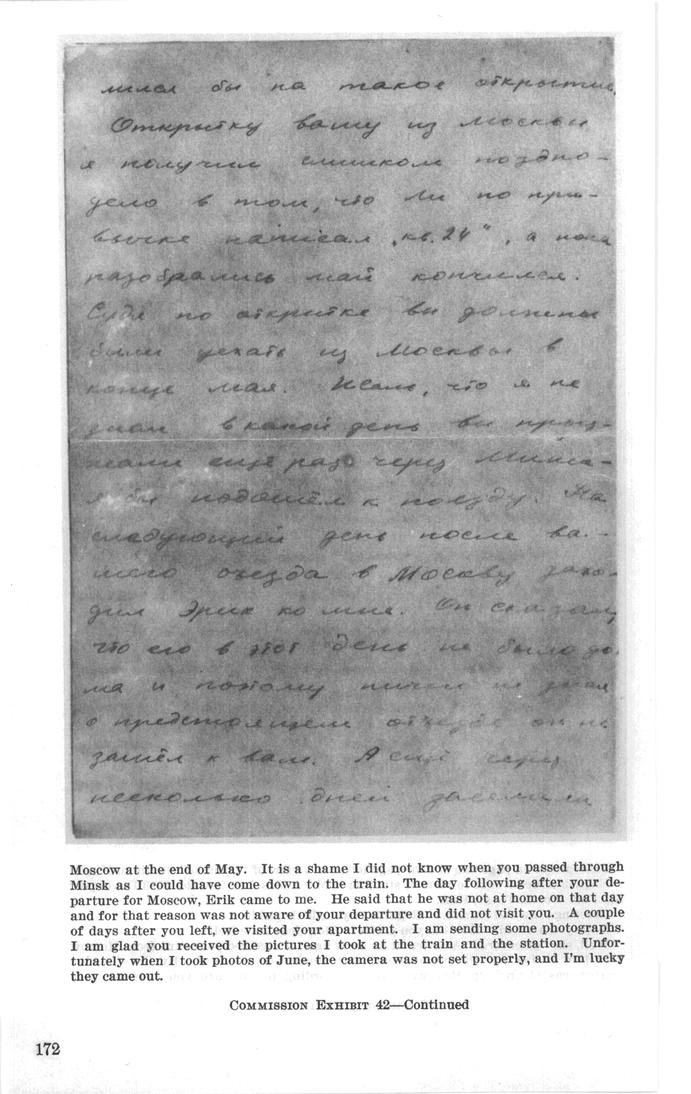 бы на такое открытие.
Открытку вашу из Москвы
я получил слишком поздно -
дело в том, что ты по при-
вычке написал „кв. 24", а пока
разобрались май кончился.
Судя по открытке вы должны
были уехать из Москвы в
конце мая. Жаль, что я не
знал в какой день вы проез-
жали ещё раз через Минск -
я бы подошёл к поезду. На
следующий день после ва-
шего отъезда в Москву захо-
дил Эрик ко мне. Он сказал,
что его в этот день не было до-
ма и потому ничего не зная
о предстоящем отъезде он не
зашёл к вам. А ещё через
несколько дней
Moscow at the end of May. It is a shame I did not know when you passed through
Minsk as I could have come down to the train. The day following after your de-
parture for Moscow, Erik came to me. He said that he was not at home on that day
and for that reason was not aware of your departure and did not visit you. A couple
of days after you left, we visited your apartment. I am sending some photographs.
I am glad you received the pictures I took at the train and the station. Unfor-
tunately when I took photos of June, the camera was not set properly, and I'm lucky
they came out.
COMMISSION EXHIBIT 42—Continued
172